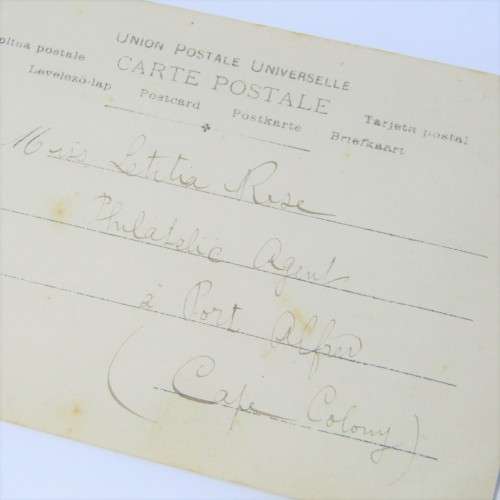 UNION POSTALE UNIVERSELLE
CARTE POSTALE
postale
Levelezö-lap Postcard Postkarte Briefkaart Tarjeta postal
Miss Letitia Rose
Philatelic Agent
à Port Alfred
(Cape Colony)